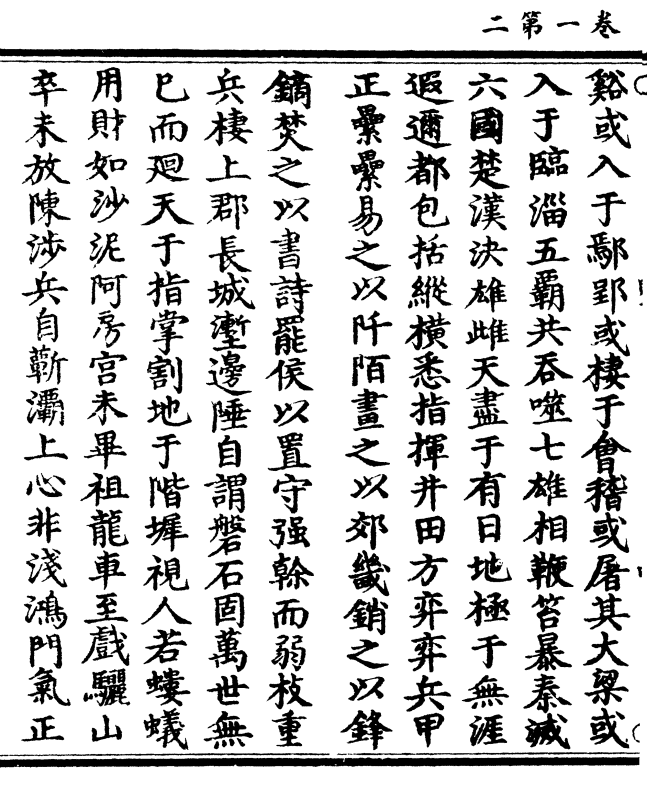 卷一第二
谿或入于鄢郢或棲于會稽或屠其大梁或
入于臨淄五霸共吞噬七雄相鞭笞暴秦滅
六國楚漢決雄雌天盡于有日地極于無涯
遐邇都包括縱橫悉指揮井田方弈弈兵甲
正纍纍易之以阡陌畫之以郊畿銷之以鋒
鏑焚之以書詩罷侯以置守强榦而弱枝重
兵棲上郡長城塹邊陲自謂磐石固萬世無
已而廻天于指掌割地于階墀視人若螻蟻
用財如沙泥阿房宮未畢祖龍車至戲驪山
卒未放陳涉兵自蘄灞上心非淺鴻門氣正